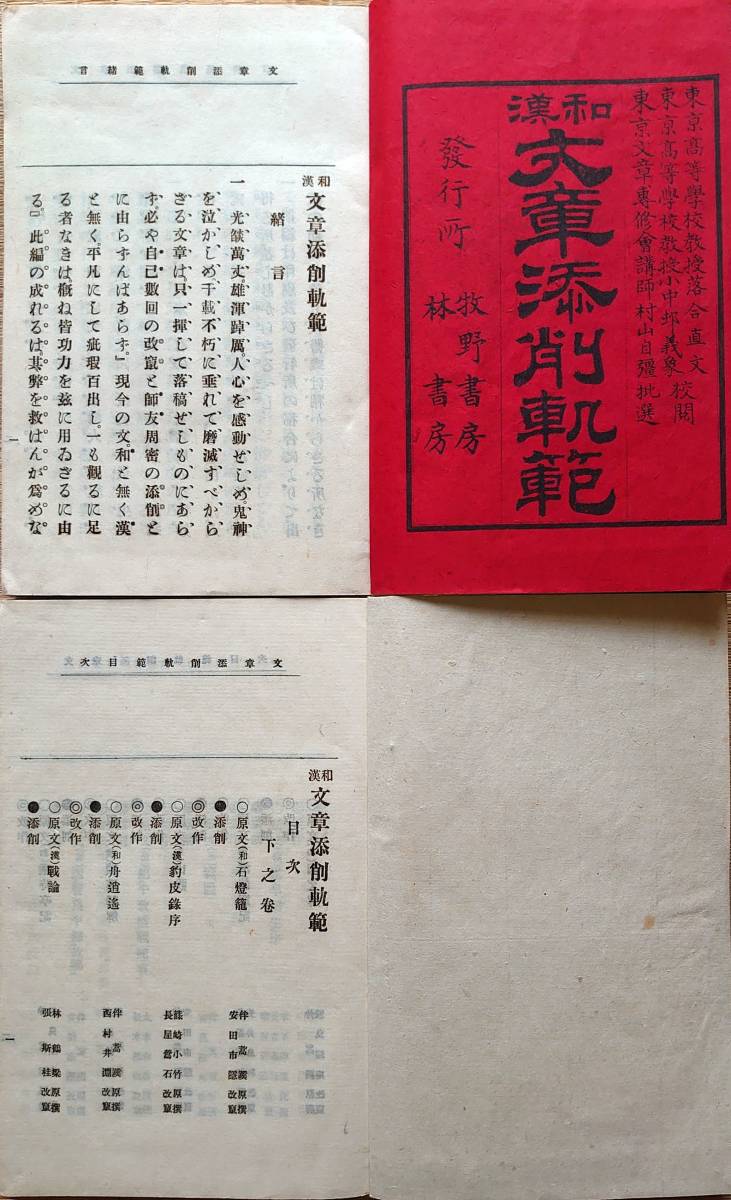 東京高等學校教授落合直文
東京高等學校教授小中邨義象校閲
東京文章專修會講師村山自彊批選
和漢
文章添削軌範
發行所
牧野書房
林書房
文章添削軌範緒言
和漢
文章添削軌範
緒言
一光燄萬丈。雄渾踔厲。人心を感動せしめ。鬼神
を泣かしめ、千載不朽に垂れて磨滅すべから
ざる文章は。只一揮して落稿せしものにあら
ず。必や自己數回の改竄と師友周密の添削と
に由らずんばあらず。』現今の文。和と無く漢
と無く。平凡にして疵瑕百出し。一も觀るに足
る者なきは概ね皆功力を玆に用ゐざるに由
る。』此編の成れるは其弊を救はんが爲めな
一
文章添削軌範目次
和漢
文章添削軌範
目次
下之卷
○原文(和)石燈籠
伴蒿蹊原撰
●添削
安田市隱改竄
◎改作
○原文(漢)豹皮錄序
篠崎小竹原撰
●添削
長屋鴦石改竄
◎改作
○原文(和)舟逍遙
伴蒿蹊原撰
●添削
西村井淵改竄
◎改作
○原文(漢)戰論
林鶴梁原撰
●添削
張斯桂改竄
一